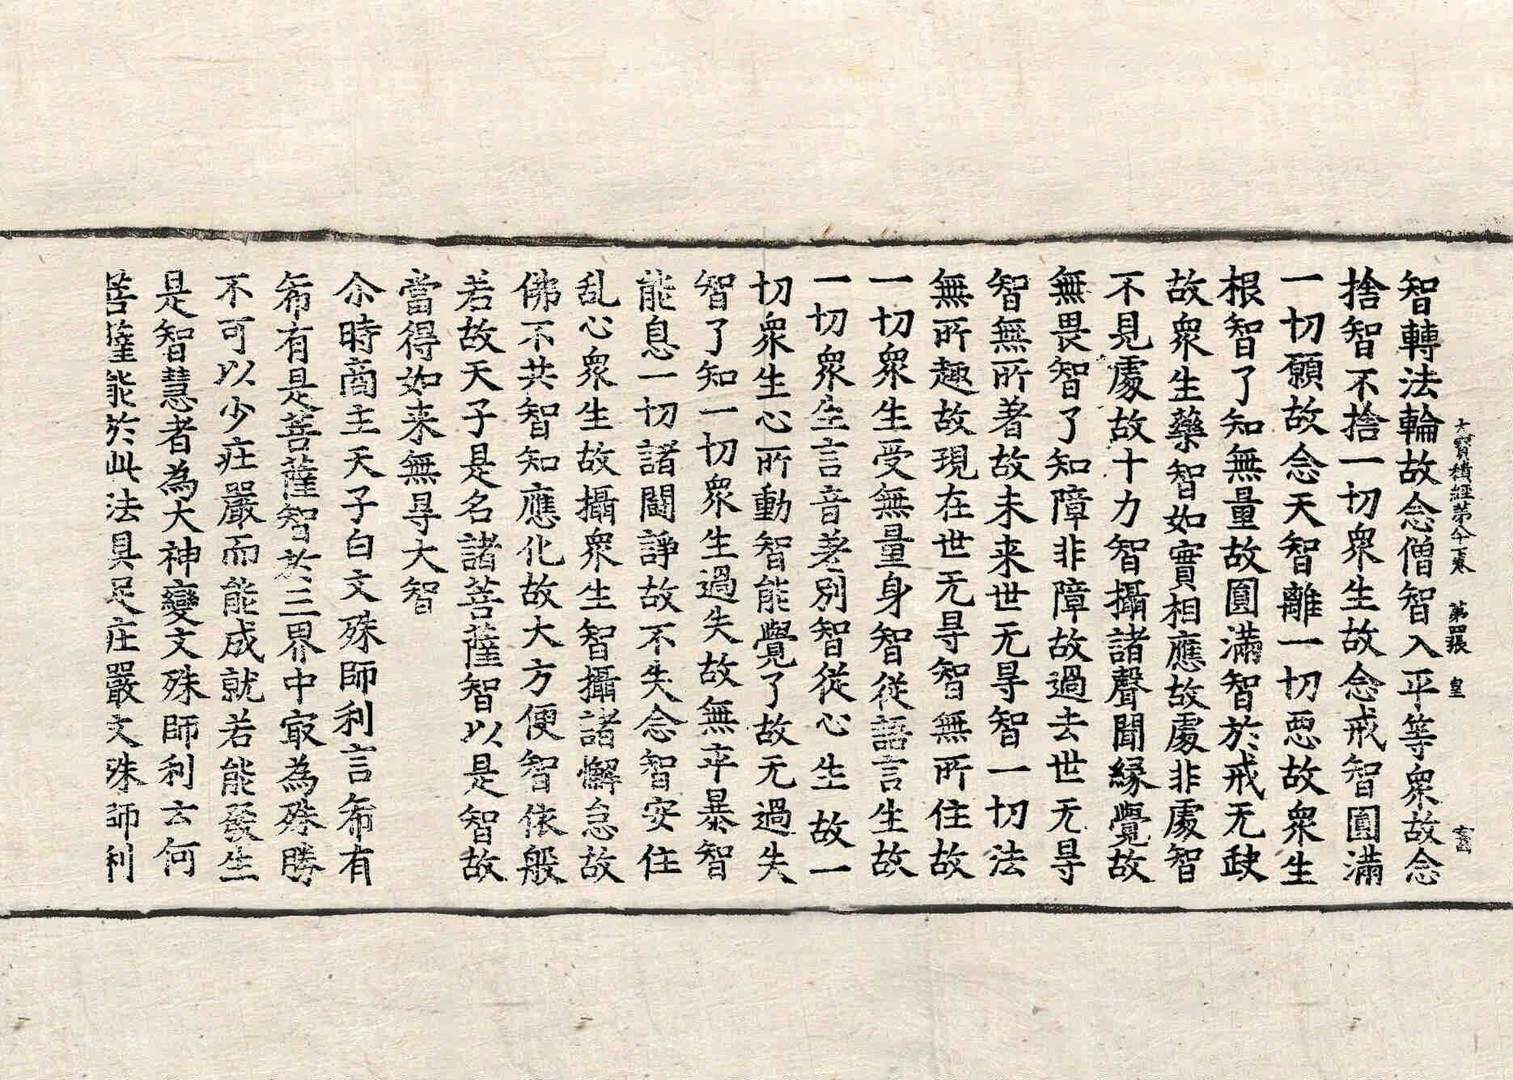 大寶積經第八十六卷 第四張 皇
智轉法輪故念僧智入平等衆故念
捨智不捨一切衆生故念戒智圓滿
一切願故念天智離一切惡故衆生
根智了知無量故圓滿智於戒无缺
故衆生藥智如實相應故處非處智
不見處故十力智攝諸聲聞緣覺故
無畏智了知障非障故過去世无㝵
智無所著故未来世无㝵智一切法
無所趣故現在世无㝵智無所住故
一切衆生受無量身智從語言生故
一切衆生言音差別智從心生故一
切衆生心所動智能覺了故无過失
智了知一切衆生過失故無卒暴智
能息一切諸鬪諍故不失念智安住
乱心衆生故攝衆生智攝諸懈怠故
佛不共智知應化故大方便智依般
若故天子是名諸菩薩智以是智故
當得如来無㝵大智
尒時商主天子白文殊師利言希有
希有是菩薩智於三界中㝡為殊勝
不可以少庄嚴而能成就若能發生
是智慧者為大神變文殊師利云何
菩薩能於此法具足庄嚴文殊師利